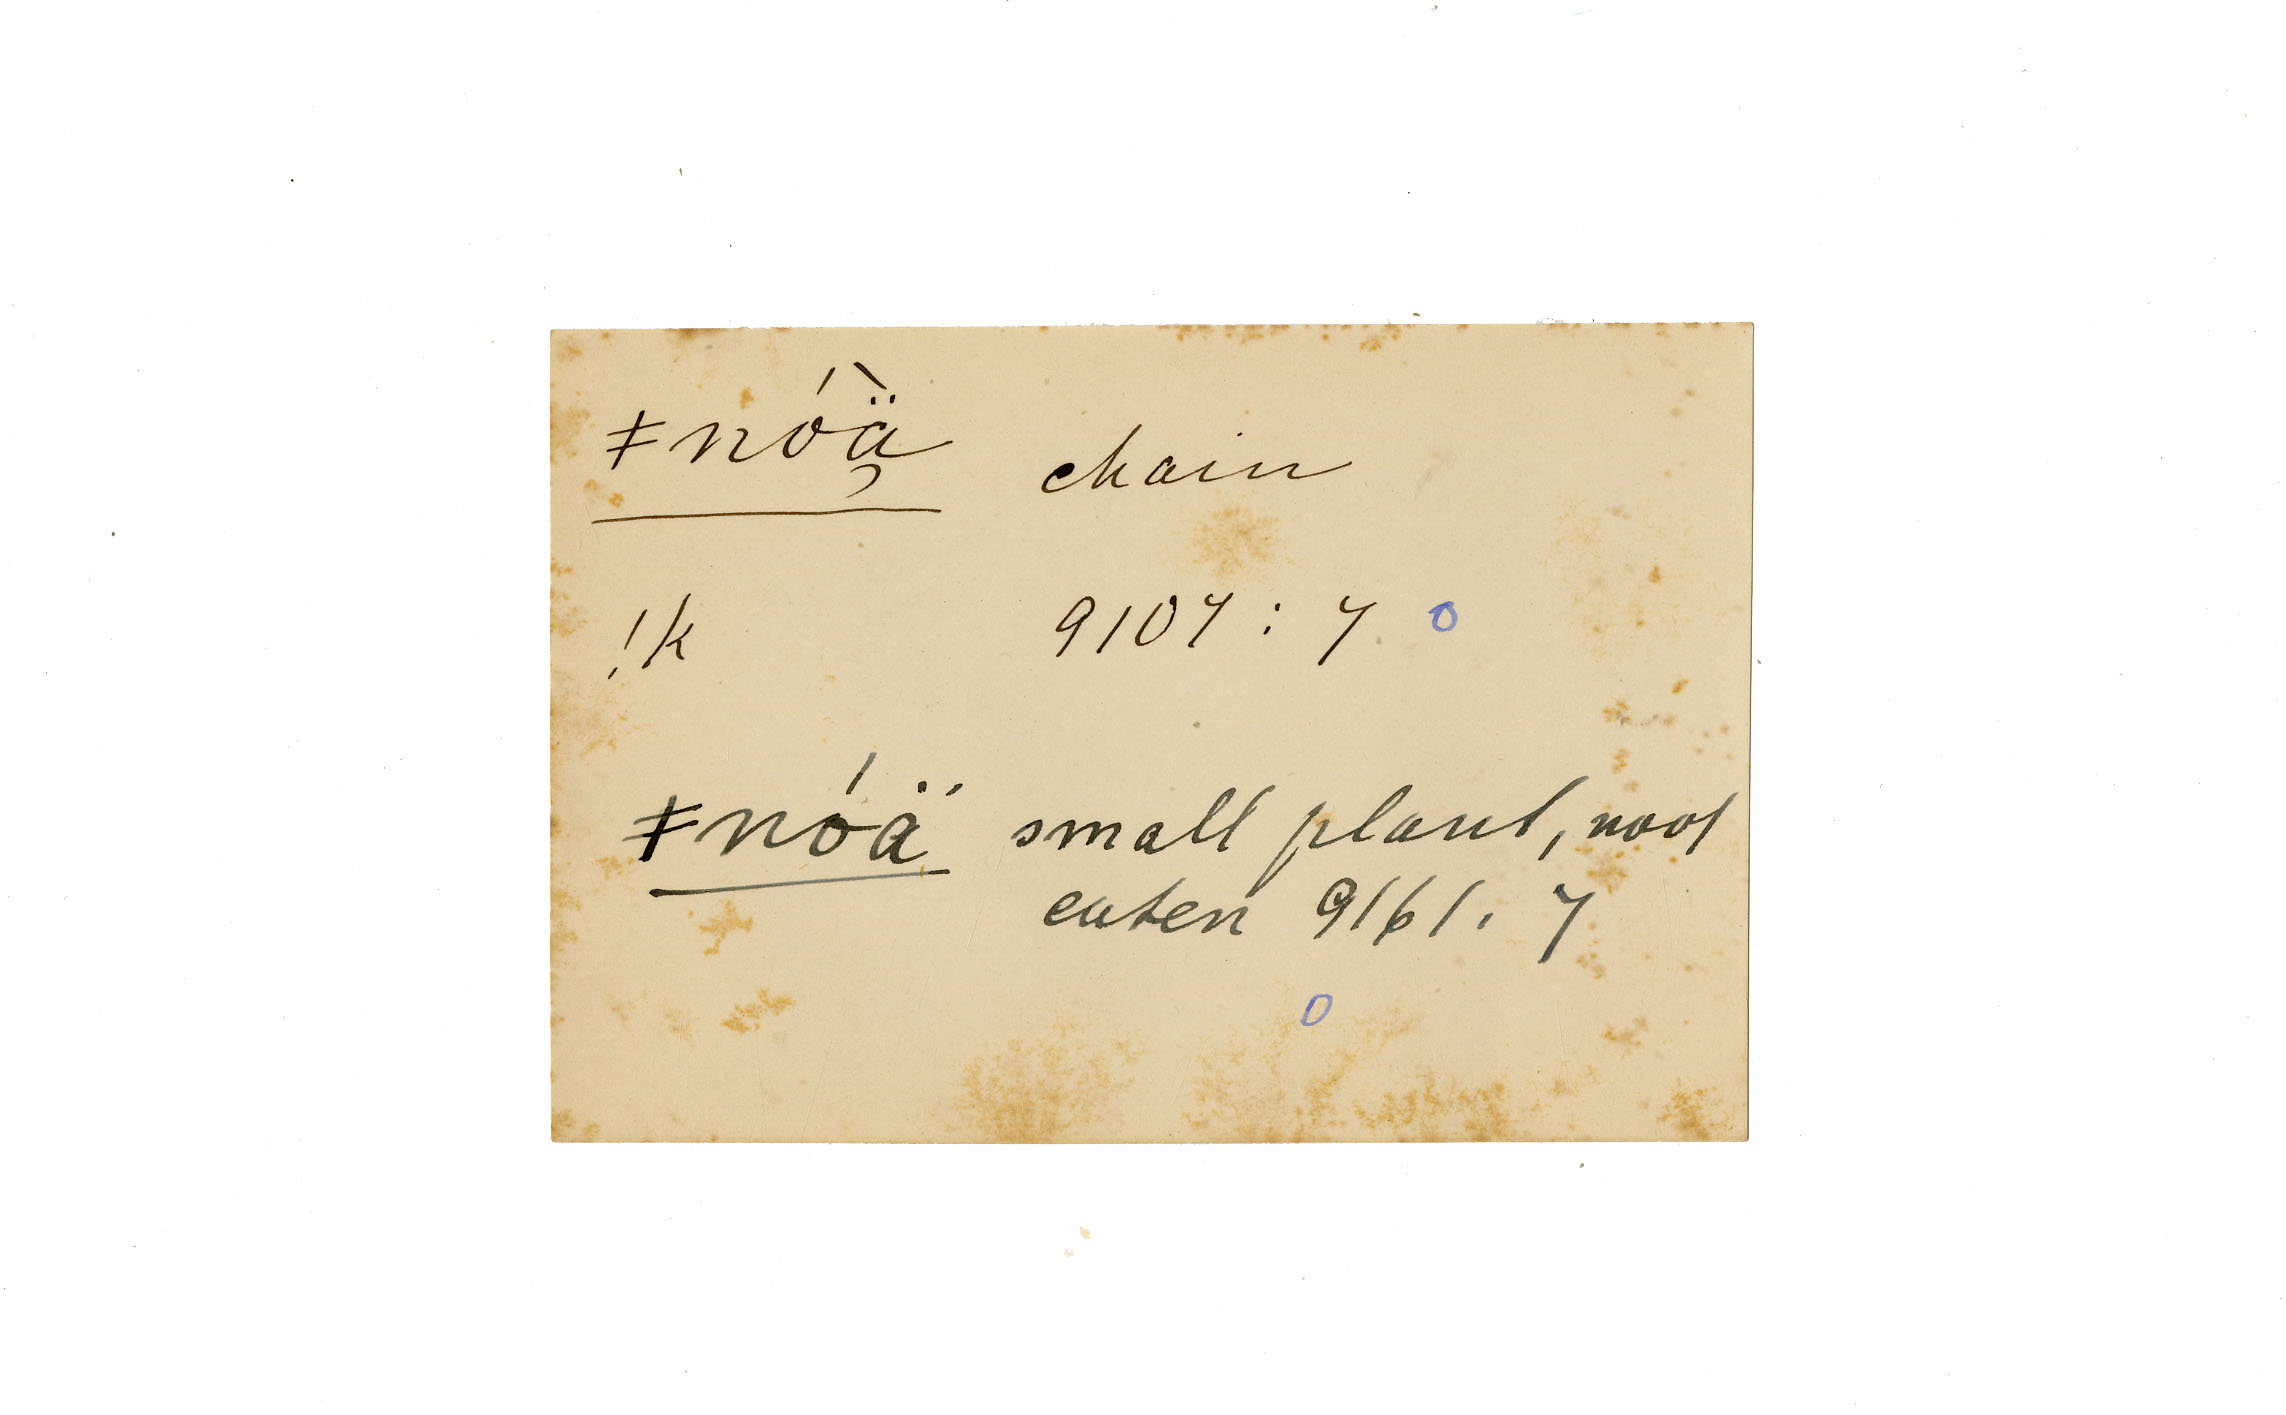 ǂnóä̀̓ chain
!k 9107 : 7 o
ǂnóä small plant, root
eaten 9161. 7
o